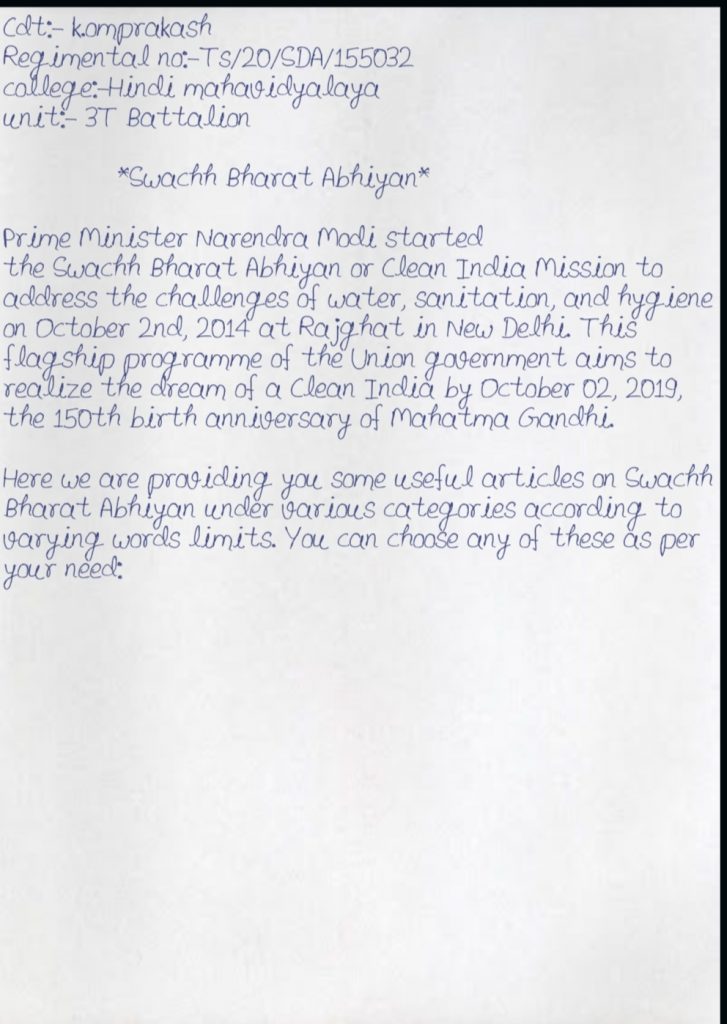 Cdt:- k.omprakash
Regimental no:-Ts/20/SDA/155032
college:-Hindi mahavidyalaya
unit:- 3T Battalion
*Swachh Bharat Abhiyan*
Prime Minister Narendra Modi started
the Swachh Bharat Abhiyan or Clean India Mission to
address the challenges of water, sanitation, and hygiene
on October 2nd, 2014 at Rajghat in New Delhi. This
flagship programme of the Union government aims to
realize the dream of a Clean India by October 02, 2019,
the 150th birth anniversary of Mahatma Gandhi.
Here we are providing you some useful articles on Swachh
Bharat Abhiyan under various categories according to
varying words limits. You can choose any of these as per
your need: